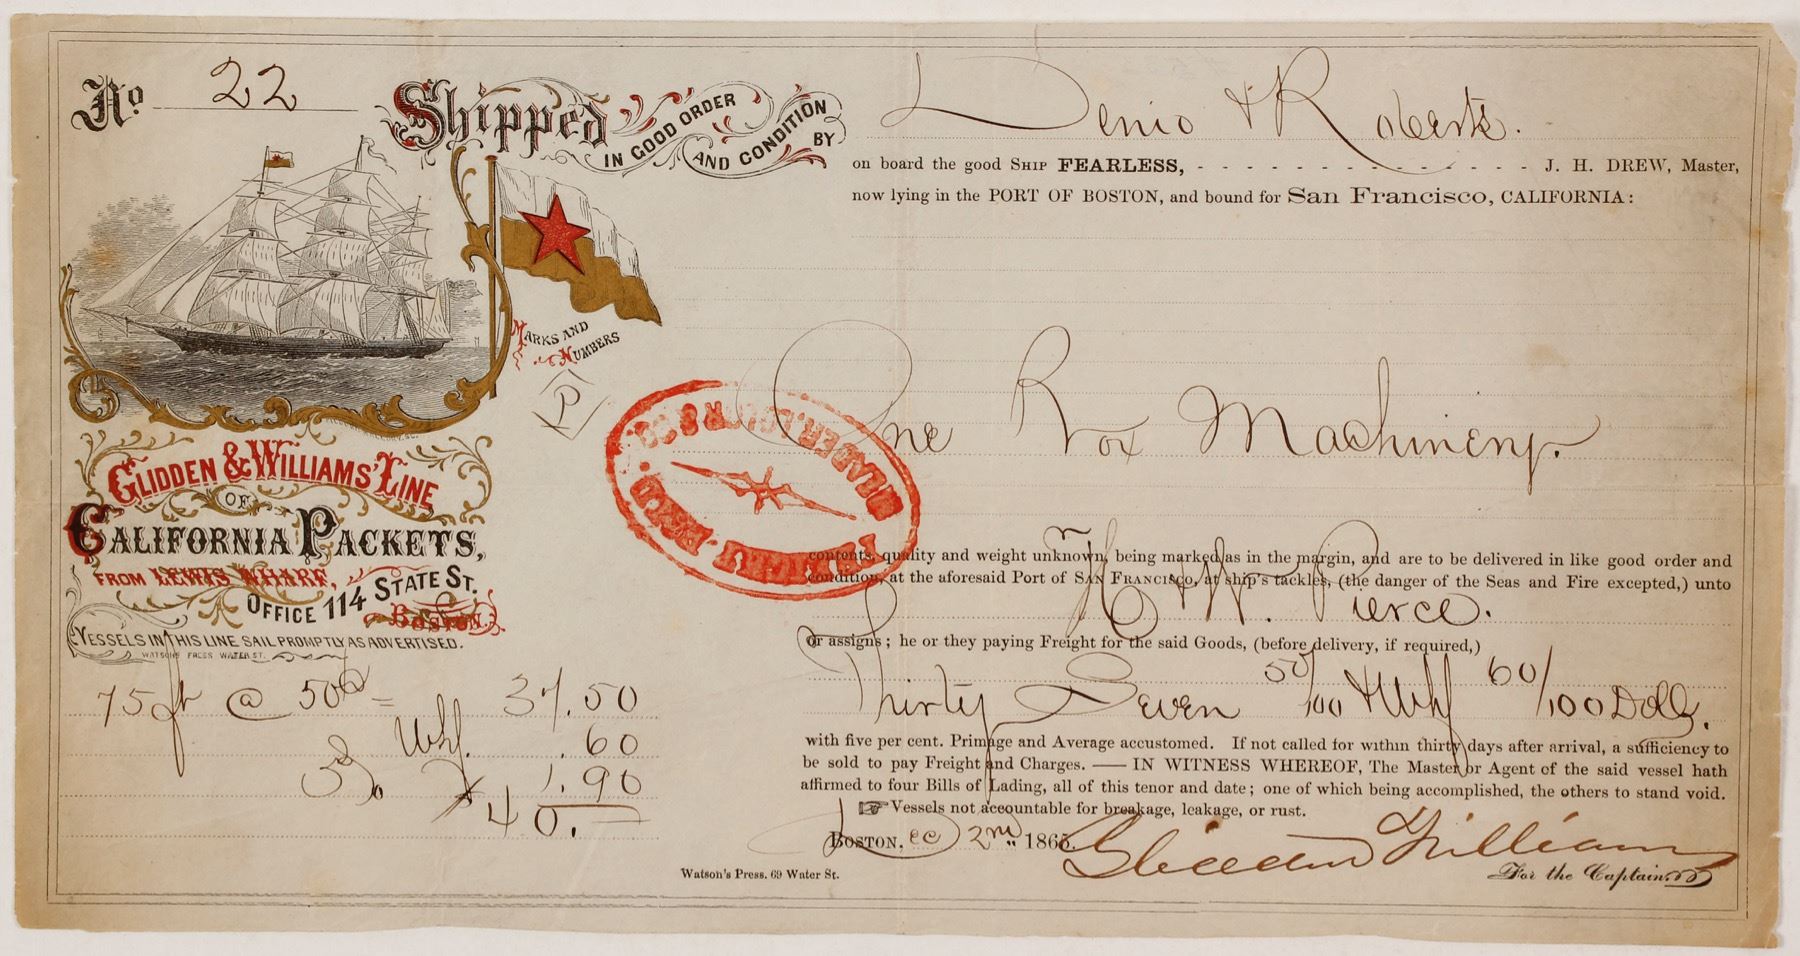 No 22
Shipped
IN GOOD ORDER
AND CONDITION
BY
Denio & Roberts.
on board the good SHIP FEARLESS, - - - - - - - - - - - - - - - J. H. DREW, Master,
now lying in the PORT OF BOSTON, and bound for San Francisco, CALIFORNIA:
MARKS AND
NUMBERS
P
One Box Machinery.
GLIDDEN & WILLIAMS' LINE
OF
CALIFORNIA PACKETS,
FROM LEWIS WHARF,
OFFICE 114 STATE ST.
BOSTON.
VESSELS IN THIS LINE SAIL PROMPTLY AS ADVERTISED.
WATSON'S PRESS WATER ST.
contents, quality and weight unknown, being marked as in the margin, and are to be delivered in like good order and
condition, at the aforesaid Port of SAN FRANCISCO, at ship's tackles, (the danger of the Seas and Fire excepted,) unto
H & W. Pierce.
or assigns; he or they paying Freight for the said Goods, (before delivery, if required,)
Thirty Seven 50/100 & Whf 60/100 Dolls.
with five per cent. Primage and Average accustomed. If not called for within thirty days after arrival, a sufficiency to
be sold to pay Freight and Charges. — IN WITNESS WHEREOF, The Master or Agent of the said vessel hath
affirmed to four Bills of Lading, all of this tenor and date; one of which being accomplished, the others to stand void.
☞ Vessels not accountable for breakage, leakage, or rust.
BOSTON, Dec 2nd 1865.
Glidden & Williams
For the Captain.
75 ft @ 50c = 37.50
Whf. .60
5%. 1.90
$40.—
Watson's Press. 69 Water St.